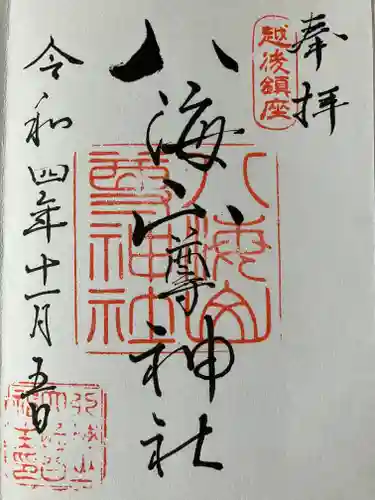 奉拝
越後鎮座
八海山尊神社
八海山尊神社
令和四年十一月五日